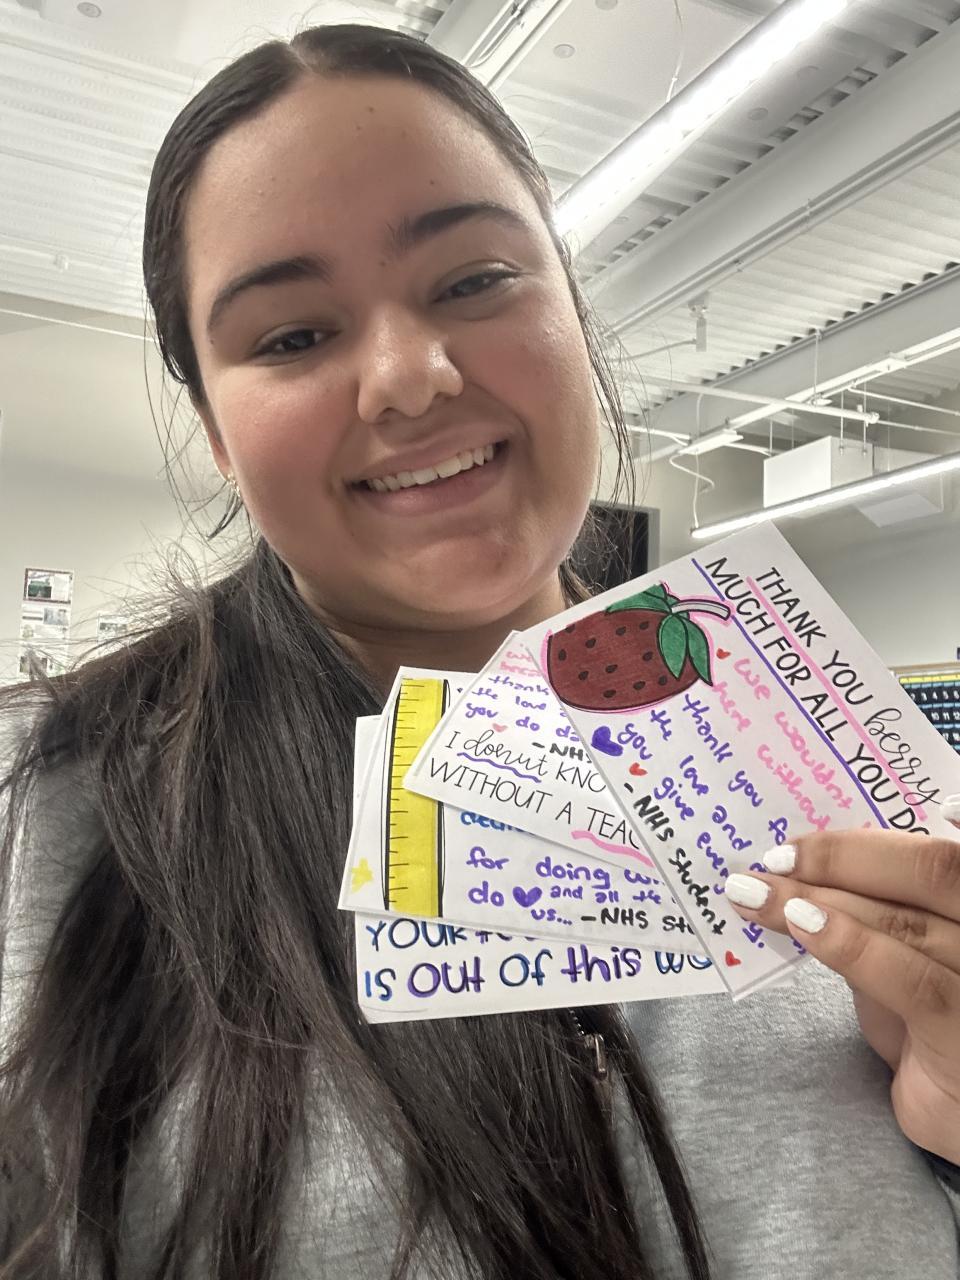 THANK YOU berry
MUCH FOR ALL YOU DO
we wouldn't
here without
thank you
the love and
you give
-NHS student
thank
the love
you do
-NHS
I donut KNO
WITHOUT A TEAC
for doing
do and all the
us... -NHS stu
YOUR
IS OUT OF this WO
10 11